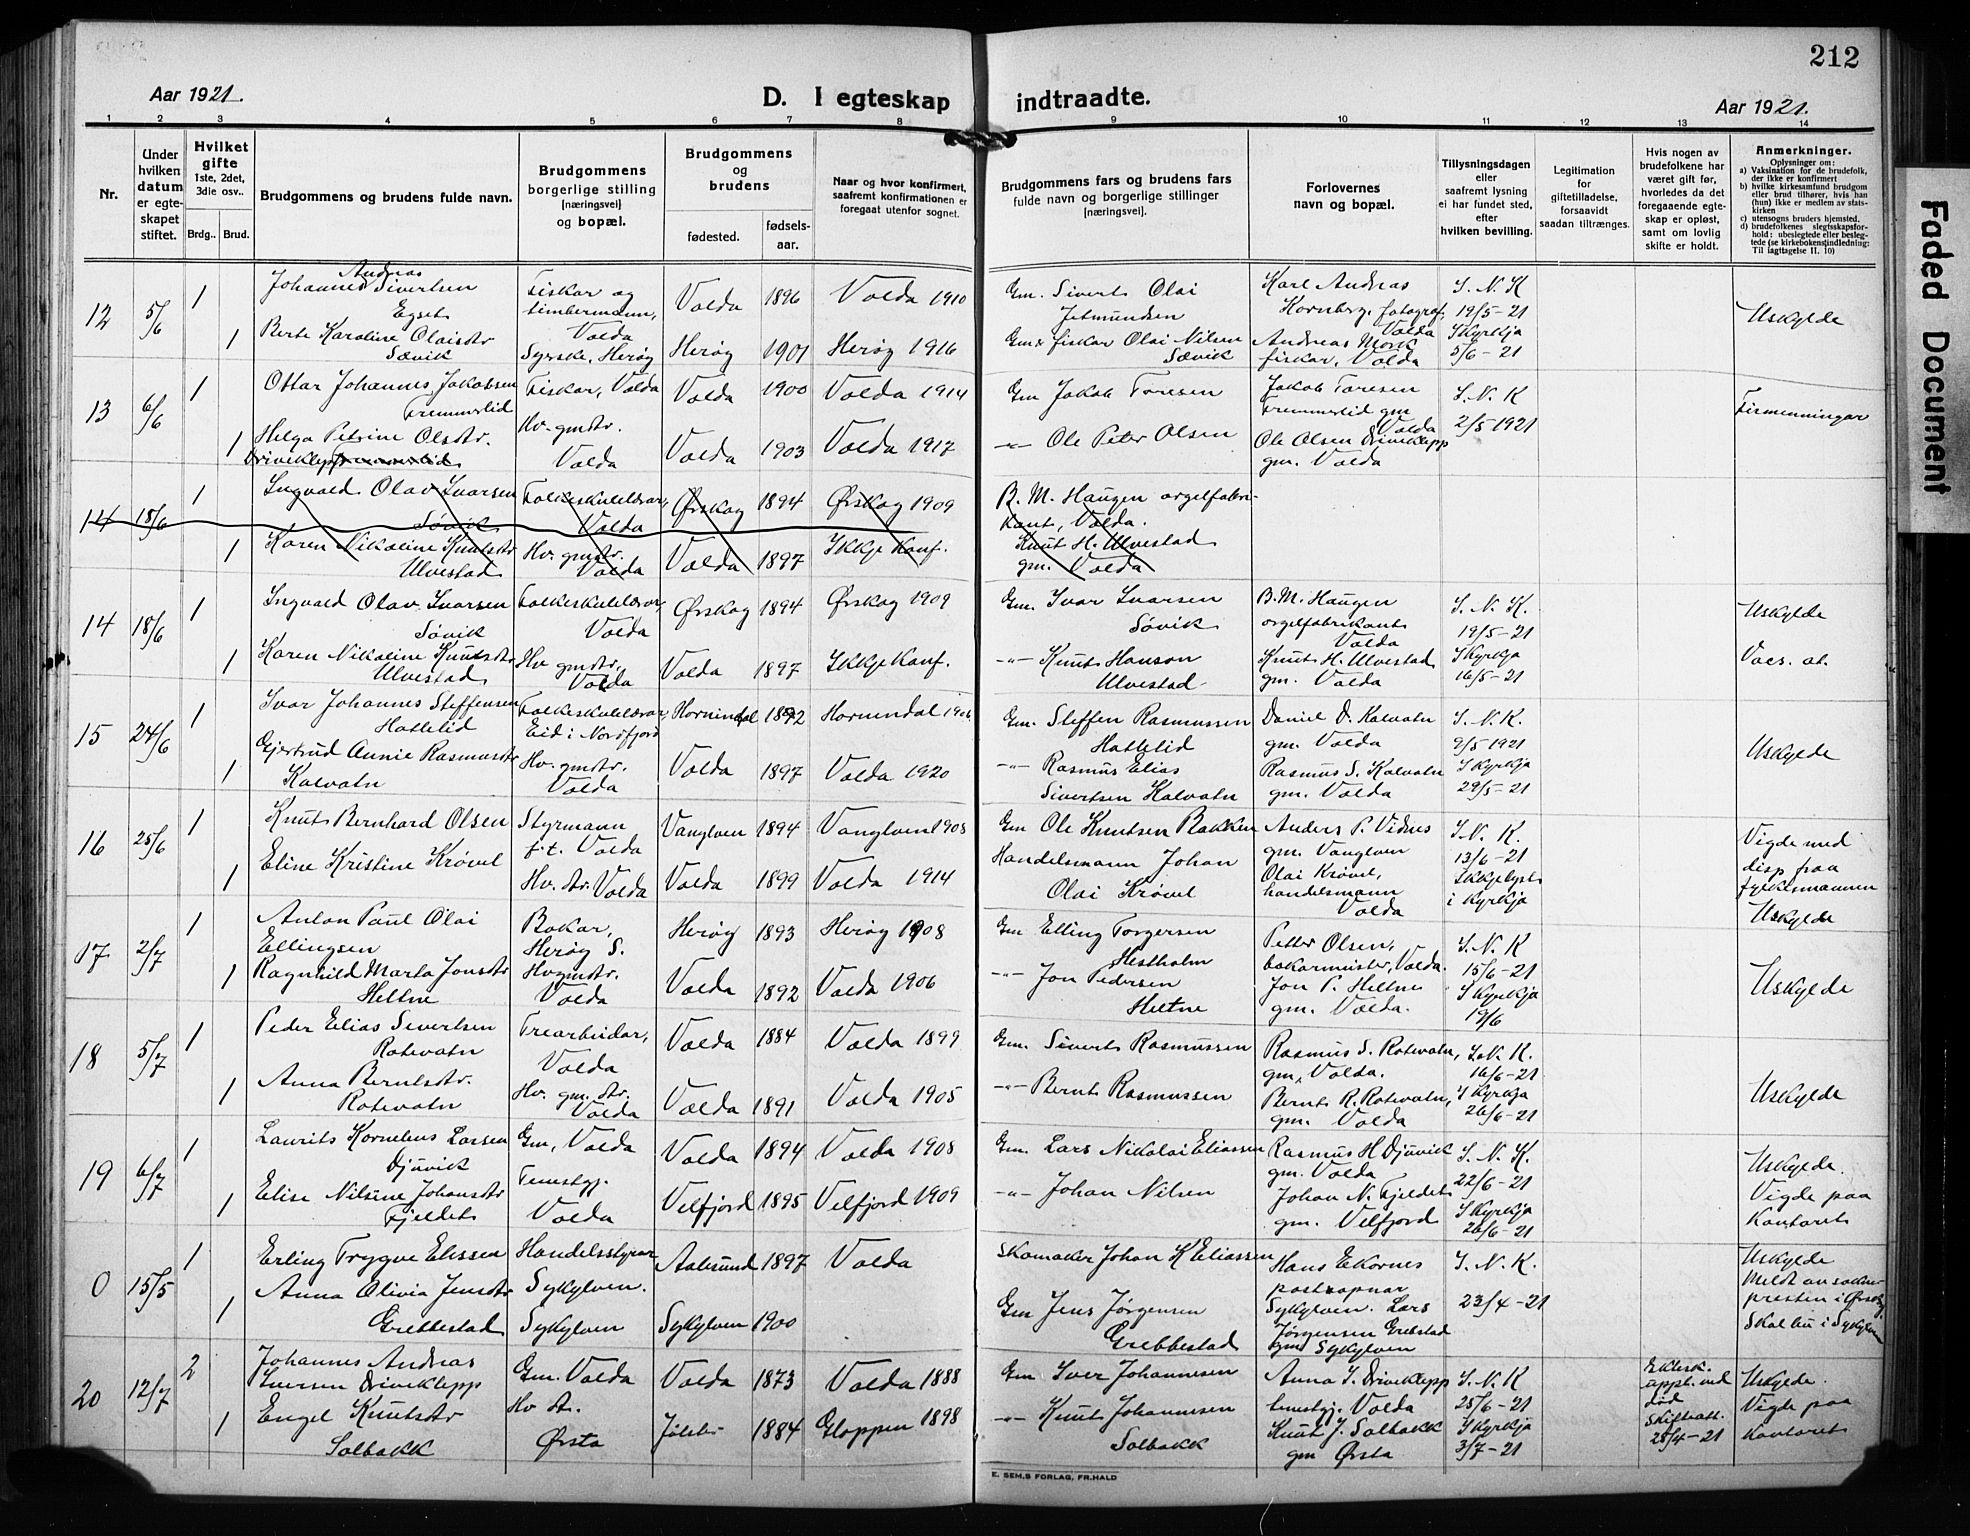 212
Aar 1921.
D. I egteskap indtraadte.
Aar 1921.
1 2 3 4 5 6 7 8 9 10 11 12 13 14
Nr.
Under hvilken datum er egteskapet stiftet.
Hvilket gifte 1ste, 2det, 3die osv..
Brdg.. Brud.
Brudgommens og brudens fulde navn.
Brudgommens borgerlige stilling (næringsvei) og bopæl.
Brudgommens og brudens
fødested.
fødsels-aar.
Naar og hvor konfirmert, saafremt konfirmationen er foregaat utenfor sognet.
Brudgommens fars og brudens fars fulde navn og borgerlige stillinger (næringsvei).
Forlovernes navn og bopæl.
Tillysningsdagen eller saafremt lysning ei har fundet sted, efter hvilken bevilling.
Legitimation for giftetilladelse, forsaavidt saadan tiltrænges.
Hvis nogen av brudefolkene har været gift før, hvorledes da det foregaaende egteskap er opløst, samt om lovlig skifte er holdt.
Anmerkninger.
Oplysninger om:
a) Vaksination for de brudefolk, der ikke er konfirmert
b) hvilke kirkesamfund brudgom eller brud tilhører, hvis han (hun) ikke er medlem av statskirken
c) utensogns bruders hjemsted.
d) brudefolkenes slegtsskapsforhold: ubeslegtede eller beslegtede (se kirkebokens indledning: Til iagttagelse II. 10)
12 5/6 1 Johannes Andreas Sivertsen Egset Fiskar og timbermann, Volda Volda 1896 Volda 1910 Gm. Sivert Olai Jetmundsen Karl Andreas Hornberg, fotograf, Volda I. N. K 19/5-21 Uskylde
1 Berte Karoline Olaisdtr Sævik Syrske, Herøy Herøy 1901 Herøy 1916 Gm & fiskar Olai Nilsen Sævik Andreas Mork fiskar, Volda I Kyrkja 5/6-21
13 6/6 1 Ottar Johannes Jakobsen Fremmerlid Fiskar, Volda Volda 1900 Volda 1914 Gm Jakob Taresen Jakob Taresen Fremmerlid gm Volda I. N. K 2/5 1921 Firmenningar
1 Helga Petrine Olsdtr. Driveklepp Fremmerlid Hv. gmdtr. Volda Volda 1903 Volda 1917 -"- Ole Peter Olsen Ole Olsen Driveklepp gm. Volda
14 18/6 1 Ingvald Olav Ivarsen Søvik Folkeskulelærar, Volda Ørskog 1894 Ørskog 1909 B. M. Haugen orgelfabrikant, Volda.
1 Karen Nikoline Knutsdtr Ulvestad Hv. gmdtr. Volda Volda 1897 Ikkje Konf. Knut H. Ulvestad gm. Volda
14 18/6 1 Ingvald Olav Ivarsen Søvik Folkeskulelærar, Volda Ørskog 1894 Ørskog 1909 Gm. Ivar Ivarsen Søvik B. M. Haugen orgelfabrikant Volda I. N. K. 19/5-21 Uskylde
1 Karen Nikoline Knutsdtr Ulvestad Hv gmdtr, Volda Volda 1897 Ikkje Konf. -"- Knut Hansen Ulvestad Knut H. Ulvestad gm. Volda I Kyrkja 16/5-21 Vacs. at.
15 24/6 1 Ivar Johannes Steffensen Hattelid Folkeskulelærar, Eid i Nordfjord Hornindal 1892 Hornindal 1906 Gm. Steffen Rasmussen Hattelid Daniel D. Kalvatn gm. Volda I. N. K. 9/5 1921 Uskylde
1 Gjertrud Annie Rasmusdtr Kalvatn Hv. gmdtr. Volda Volda 1897 Volda 1920 -"- Rasmus Elias Sivertsen Kalvatn Rasmus S. Kalvatn gm. Volda I Kyrkja 29/5-21
16 25/6 1 Knut Bernhard Olsen Styrmann f.t. Volda Vanylven 1894 Vanylven 1908 Gm Ole Knutsen Bakken Anders P. Vidnes gm. Vanylven I. N. K. 13/6-21 Vigde med disp fraa fylkesmannen
1 Eline Kristine Krøvel Hv. dtr. Volda Volda 1899 Volda 1914 Handelsmann Johan Olai Krøvel Olai Krøvel, handelsmann Volda Ikkje lyst i Kyrkja Uskylde
17 2/7 1 Anton Paul Olai Ellingsen Bakar, Herøy S. Herøy 1893 Herøy 1908 Gm Elling Torgersen Hestholm Petter Olsen, bakarmeister, Volda. I. N. K 15/6-21
1 Ragnhild Marta Jonsdtr Heltne Hv gmdtr. Volda Volda 1892 Volda 1906 -"- Jon Pedersen Heltne Jon P. Heltne gm. Volda. I Kyrkja 19/6 Uskylde
18 5/7 1 Peder Elias Sivertsen Rotevatn Trearbeidar, Volda Volda 1884 Volda 1899 Gm. Sivert Rasmussen Rasmus S. Rotevatn, gm, Volda. I. N. K. 16/6-21
1 Anna Berntsdtr. Rotevatn Hv. gm. dtr. Volda Volda 1891 Volda 1905 -"- Bernt Rasmussen Bernt R. Rotevatn, gm. Volda I Kyrkja 26/6-21 Uskylde
19 6/7 1 Laurits Kornelius Larsen Djuvik Gm, Volda Volda 1894 Volda 1908 Gm. Lars Nikolai Eliassen Rasmus H Djuvik gm. Volda I. N. K. 22/6-21 Uskylde.
1 Elise Nilsine Johansdtr Fjeldet Tenestgj. Volda Velfjord 1895 Velfjord 1909 -"- Johan Nilsen Johan N. Fjeldet gm. Velfjord I Kyrkja 26/6-21 Vigde paa Kontoret
0 15/5 1 Erling Trygve Elissen Handelsstyrar Sykylven. Aalesund 1897 Volda Skomaker Johan K Eliassen Hans Ekornes postopnar Sykylven. I. N. K. 23/4-21 Uskylde Meldt av soknepresten i
1 Anna Olivia Jensdtr Grebbestad Sykylven Sykylven 1900 Gm Jens Jørgensen Grebbestad Lars Jørgensen Grebstad gm Sykylven Skal bu i Sykylven
20 12/7 2 Johannes Andreas Iversen Driveklepp Gm. Volda Volda 1873 Volda 1888 Gm Iver Johannesen Anna I. Driveklepp tenestgj. Volda I. N. K 25/6-21 Uskylde.
1 Engel Knutsdtr Solbakk Hv dt. Ørsta Jølster 1884 Gloppen 1898 -"- Knut Johannesen Solbakk Knut J. Solbakk gm Ørsta I Kyrkja 3/7-21 død Skifteatt. 25/4-21 Vigde paa Kontoret
E. SEM,S FORLAG, FR.HALD
Faded Document